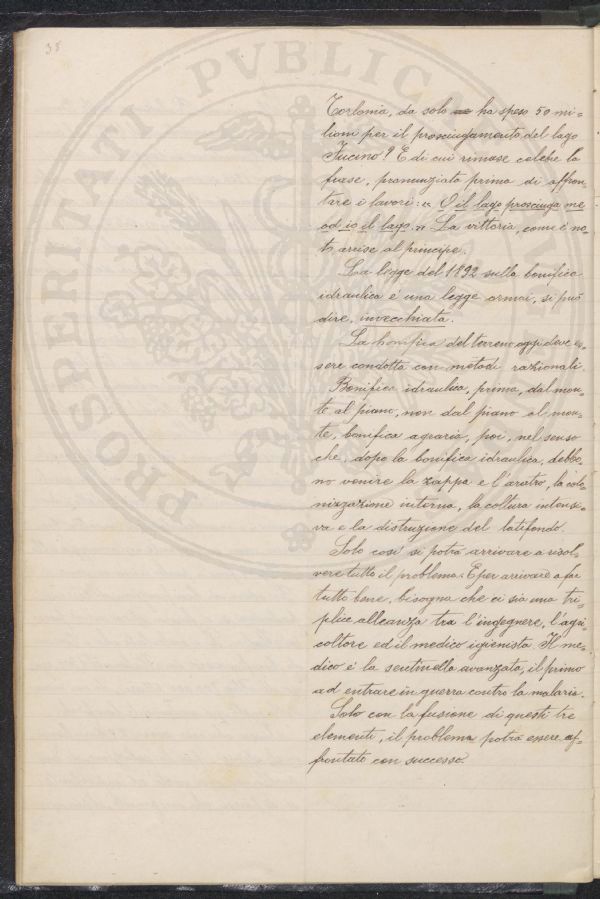 38
Torlonia, da solo ha speso 50 mi=
lioni per il prosciugamento del lago
Fucino? E di cui rimase celebre la
frase, pronunziata prima di affron=
tare i lavori: « O il lago prosciuga me
od io il lago. » La vittoria, come è no=
to arrise al principe.
La legge del 1892 sulla bonifica
idraulica è una legge ormai, si può
dire, invecchiata.
La bonifica del terreno oggi deve es=
sere condotta con metodi razionali.
Bonifica idraulica, prima, dal mon=
te al piano, non dal piano al mon=
te, bonifica agraria, poi, nel senso
che, dopo la bonifica idraulica, debbo=
no venire la zappa e l'aratro, la colo=
nizzazione interna, la coltura intensi=
va e la distruzione del latifondo.
Solo così si potrà arrivare a risol=
vere tutto il problema. E per arrivare a far
tutto bene, bisogna che ci sia una tri=
plice alleanza tra l'ingegnere, l'agri
coltore ed il medico igienista. Il me=
dico è la sentinella avanzata, il primo
ad entrare in guerra contro la malaria.
Solo con la fusione di questi tre
elementi, il problema potrà essere af=
frontato con successo.
PROSPERITATI PVBLICAE